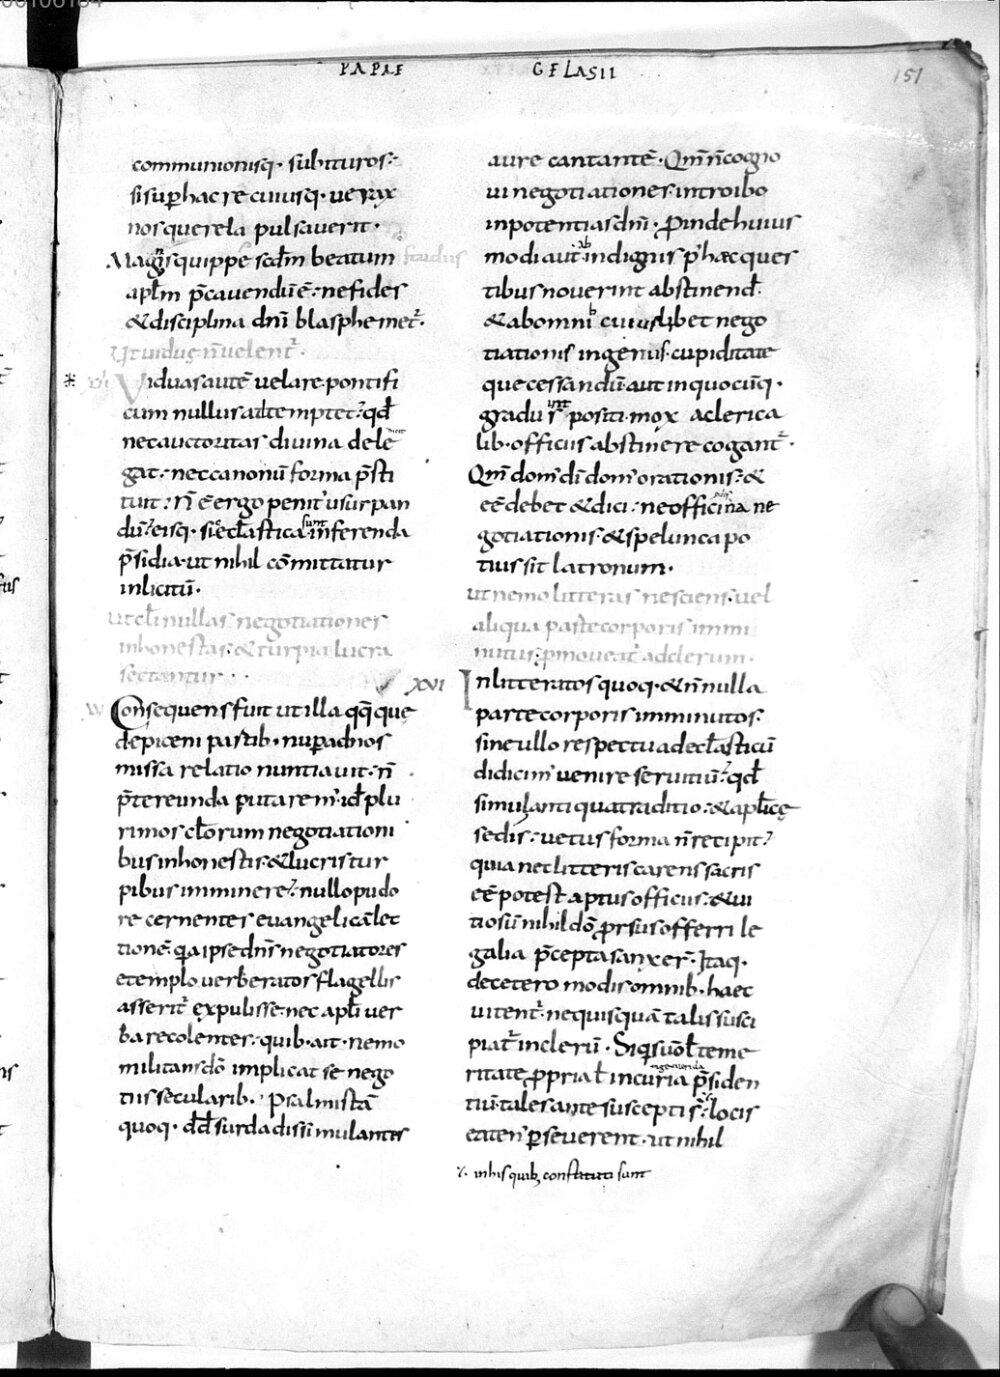 PAPAE GELASII
151
communionisq· subituros:
si sup hac re cuiusq· uerax
nos querela pulsauerit·
Magis quippe scdm beatum
aplm p̄cauendū ē: ne fides
& disciplina dn̄i blasphemet̄·
Ut uiduę n̄ uelent̄·
VI
Viduas autē uelare pontifi
cum nullus adtemptet: qd̄
nec auctoritas diuina dele
gat: nec canonū forma p̄sti
tuit: n̄ ē ergo penit' usurpan
dū: eisq· sic ęclastica sunt ferenda
p̄sidia· ut nihil cōmittatur
inlicitū·
Ut cl̄i nullas negotiationes
inhonestas· & turpia lucra
sectantur·
XVI
Consequens fuit ut illa qq̄ que
de piceni partib· nup ad nos
missa relatio nuntiauit· n̄
p̄tereunda putarem'· id ē plu
rimos cl̄orum negotiationi
bus inhonestis· & lucris tur
pibus imminere: nullo pudo
re cernentes euangelicā lec
tionē· qa ipse dn̄s negotiatores
e templo uerberatos flagellis
asserit̄ expulisse· nec apl̄i uer
ba recolentes· quib· ait· nemo
militans dō implicat se nego
tiis secularib· Psalmistā
quoq· dd̄ surda dissimulantes
aure cantantē· Qm̄ n̄ cogno
ui negotiationes· introibo
in potentias dn̄i· Proinde huius
modi aut ab indignis p' hac ques
tibus nouerint abstinend̄·
& ab omni cuiuslibet nego
tiationis ingenio· cupiditate
que cessandū· aut in quocūq·
gradu sunt positi· mox a clerica
lib· officiis abstinere cogant̄·
Qm̄ dom' dī dom' orationis· &
eē debet & dici: ne officina ne
gotiationis· & spelunca po
tius sit latronum·
Ut nemo litteras nesciens· uel
aliqua parte corporis immi
nutus· pmoueat̄ ad clerum·
Inlitteratos quoq· & n̄nulla
parte corporis imminutos·
sine ullo respectu ad ecl̄asticū
didicim' uenire seruitiū: qd̄
simul antiqua traditio· & aplicę
sedis· uetus forma n̄ recipit:
quia nec litteris carens sacris
eē potest aptus officiis· & ui
tiosū nihil dō prorsus offerri le
galia p̄cepta sanxer̄· Itaq·
de cetero modis omnib· haec
uitent̄· ne quisquā talis susci
piat̄ in clerū· Siqs uol̄ teme
ritate ppria l̄ incuria p̄siden
tiū· tales ante suscepti s̄: locis
eaten' pseuerent· ut nihil
in his quib; constituti sunt